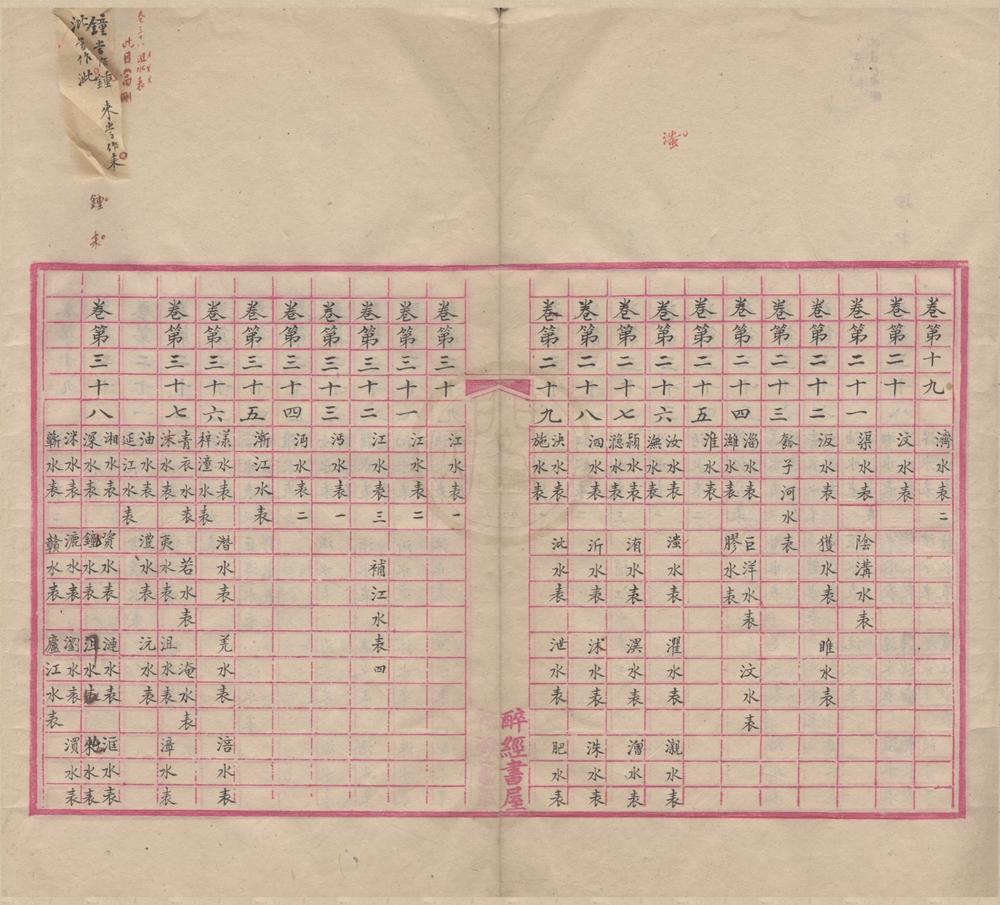 滍
卷第十九 濟水表二
卷第二十 汶水表
卷第二十一 渠水表 陰溝水表
卷第二十二 汳水表 獲水表 睢水表
卷第二十三 瓠子河水表
卷第二十四 淄水表 巨洋水表 汶水表
濰水表 膠水表
卷第二十五 淮水表
卷第二十六 汝水表 滍水表 灈水表 瀙水表
潕水表
卷第二十七 潁水表 洧水表 潩水表 潧水表
濦水表
卷第二十八 泗水表 沂水表 沭水表 洙水表
卷第二十九 決水表 沘水表 泄水表 肥水表
施水表
醉經書屋
卷第三十 江水表一
卷第三十一 江水表二
卷第三十二 江水表三 補江水表四
卷第三十三 沔水表一
卷第三十四 沔水表二
卷第三十五 漸江水表
卷第三十六 漾水表 潛水表 羌水表 涪水表
梓潼水表
卷第三十七 青衣水表 若水表 淹水表
沫水表 夷水表 沮水表 漳水表
油水表 澧水表 沅水表
延江水表
卷第三十八 湘水表 資水表 漣水表 洭水表
深水表 鐘水表 水表 水表
洣水表 漉水表 瀏水表 水表
蘄水表 贛水表 廬江水表
卷三十八 洭水表
此目當刪
鐘當作鍾 來當作耒
鍾 耒